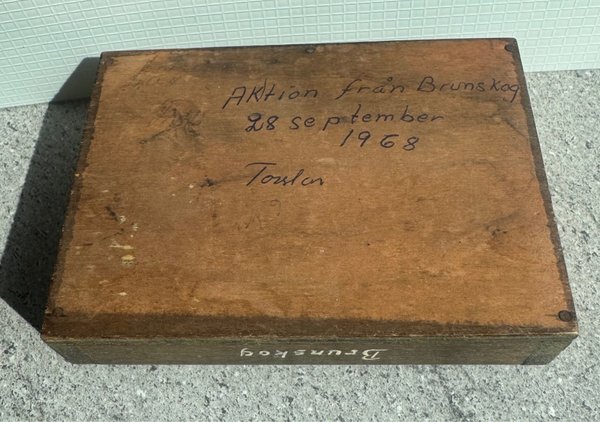 Aktion från Brunskog
28 september
1968
Brunskog